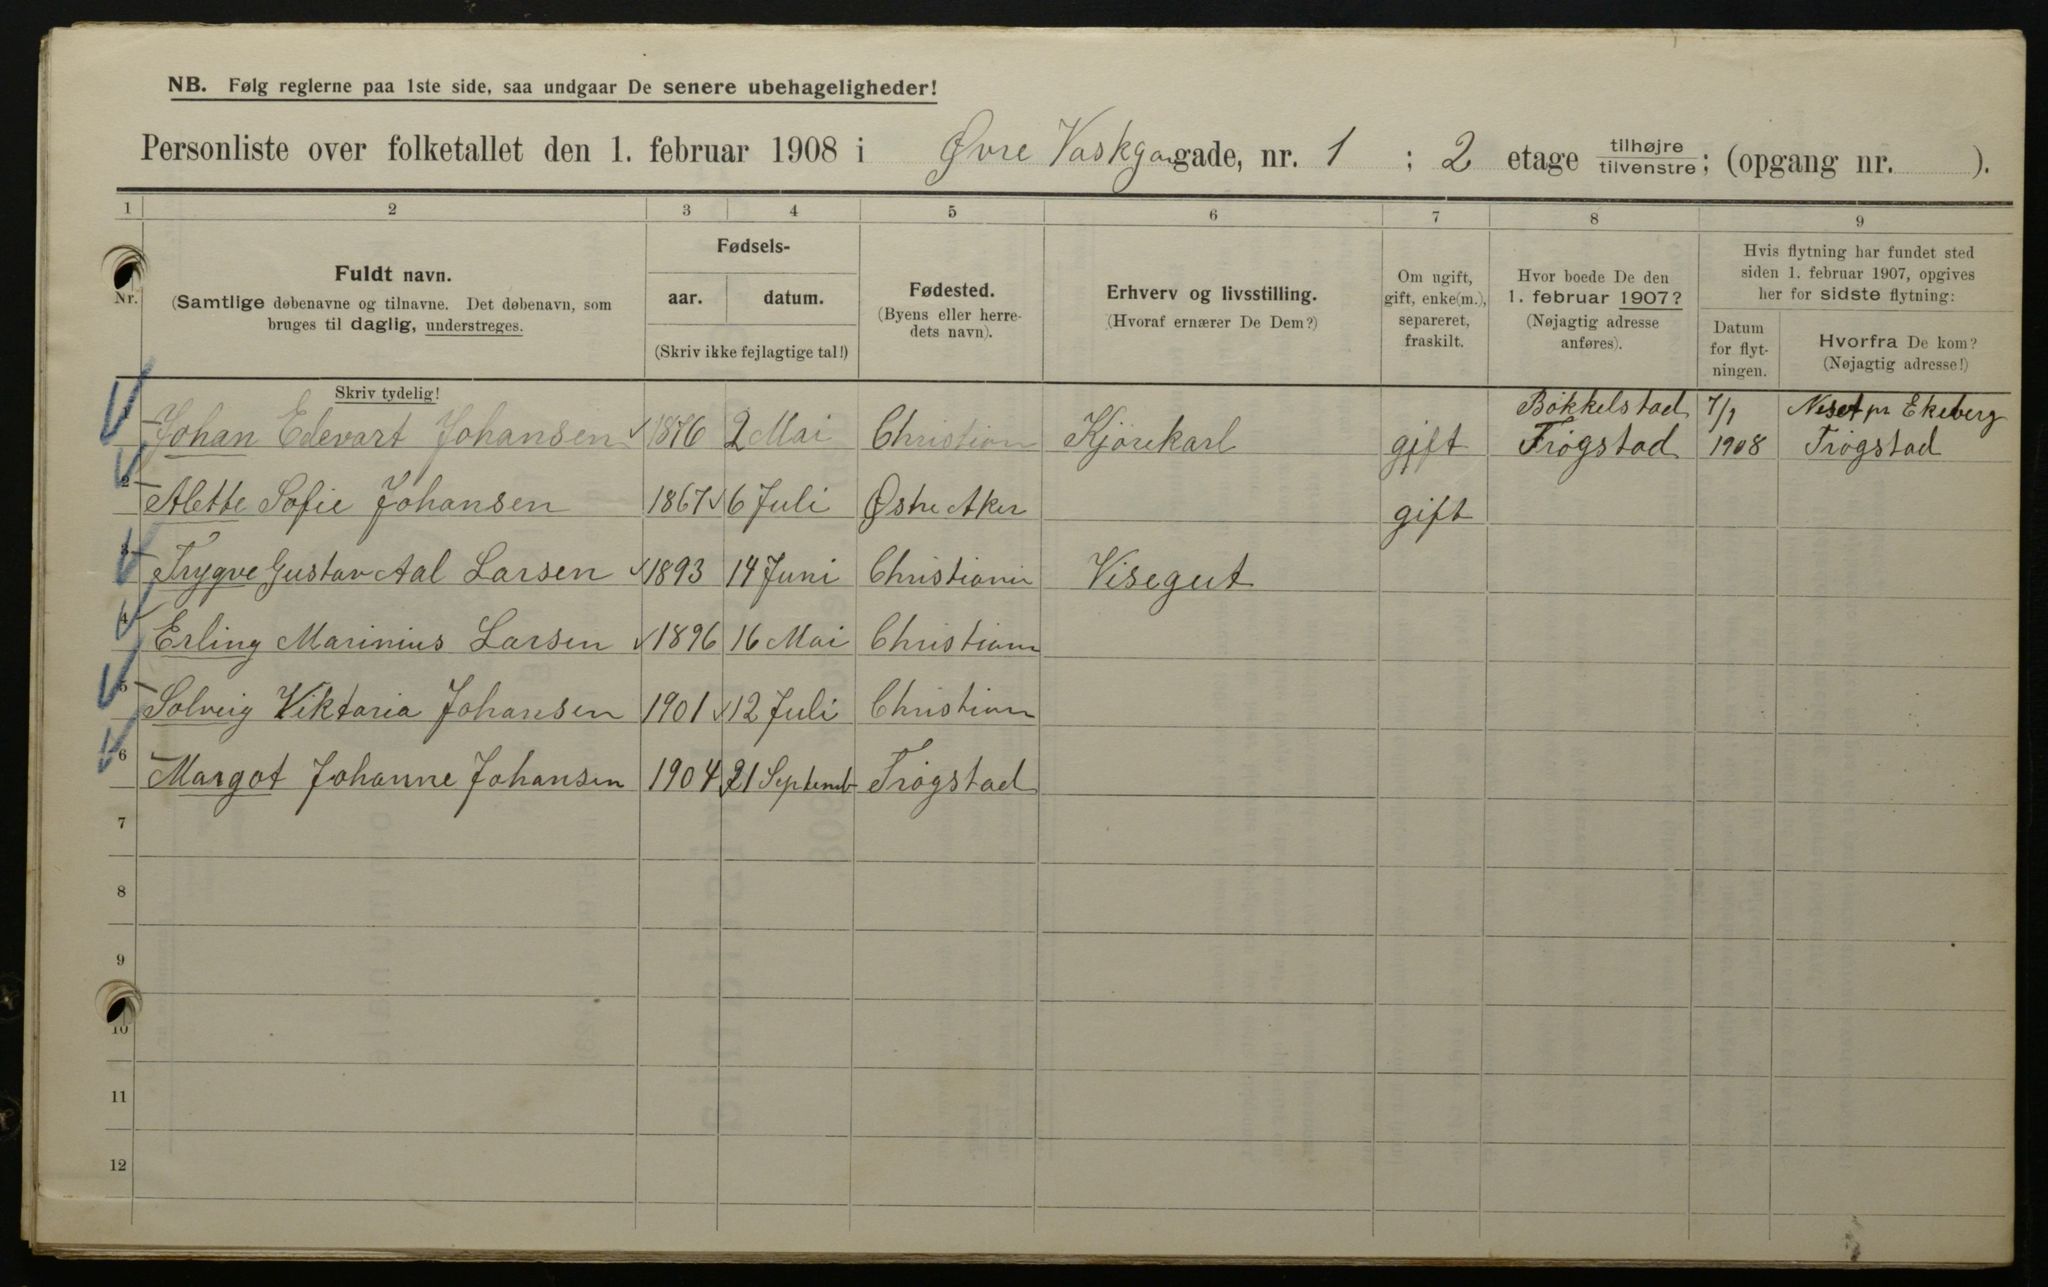 NB. Følg reglerne paa 1ste side, saa undgaar De senere ubehageligheder!
Personliste over folketallet den 1. februar 1908 i Øvre Vaskgan gade, nr. 1 ; 2 etage tilhøjre / tilvenstre ; (opgang nr. ).
1 2 3 4 5 6 7 8 9
Nr.
Fuldt navn.
(Samtlige døbenavne og tilnavne. Det døbenavn, som
bruges til daglig, understreges.
Skriv tydelig!
Fødsels-
aar. datum.
(Skriv ikke fejlagtige tal!)
Fødested.
(Byens eller herre-
dets navn).
Erhverv og livsstilling.
(Hvoraf ernærer De Dem?)
Om ugift,
gift, enke(m.),
separeret,
fraskilt.
Hvor boede De den
1. februar 1907?
(Nøjagtig adresse
anføres).
Hvis flytning har fundet sted
siden 1. februar 1907, opgives
her for sidste flytning:
Datum
for flyt-
ningen.
Hvorfra De kom?
(Nøjagtig adresse!)
Bøkkelstad 7/1 Neset pr Ekeberg
1 Johan Edevart Johansen 1876 2 Mai Christian Kjørekarl gift Trøgstad 1908 Trøgstad
2 Alette Sofie Johansen 1867 6 Juli Østre Aker gift
3 Trygve Gustav Aal Larsen 1893 14 Juni Christiania Visegut
4 Erling Marinius Larsen 1896 16 Mai Christian
5 Solveig Viktoria Johansen 1901 12 Juli Christian
6 Margot Johanne Johansen 1904 21 Septemb Trøgstad
7
8
9
10
11
12